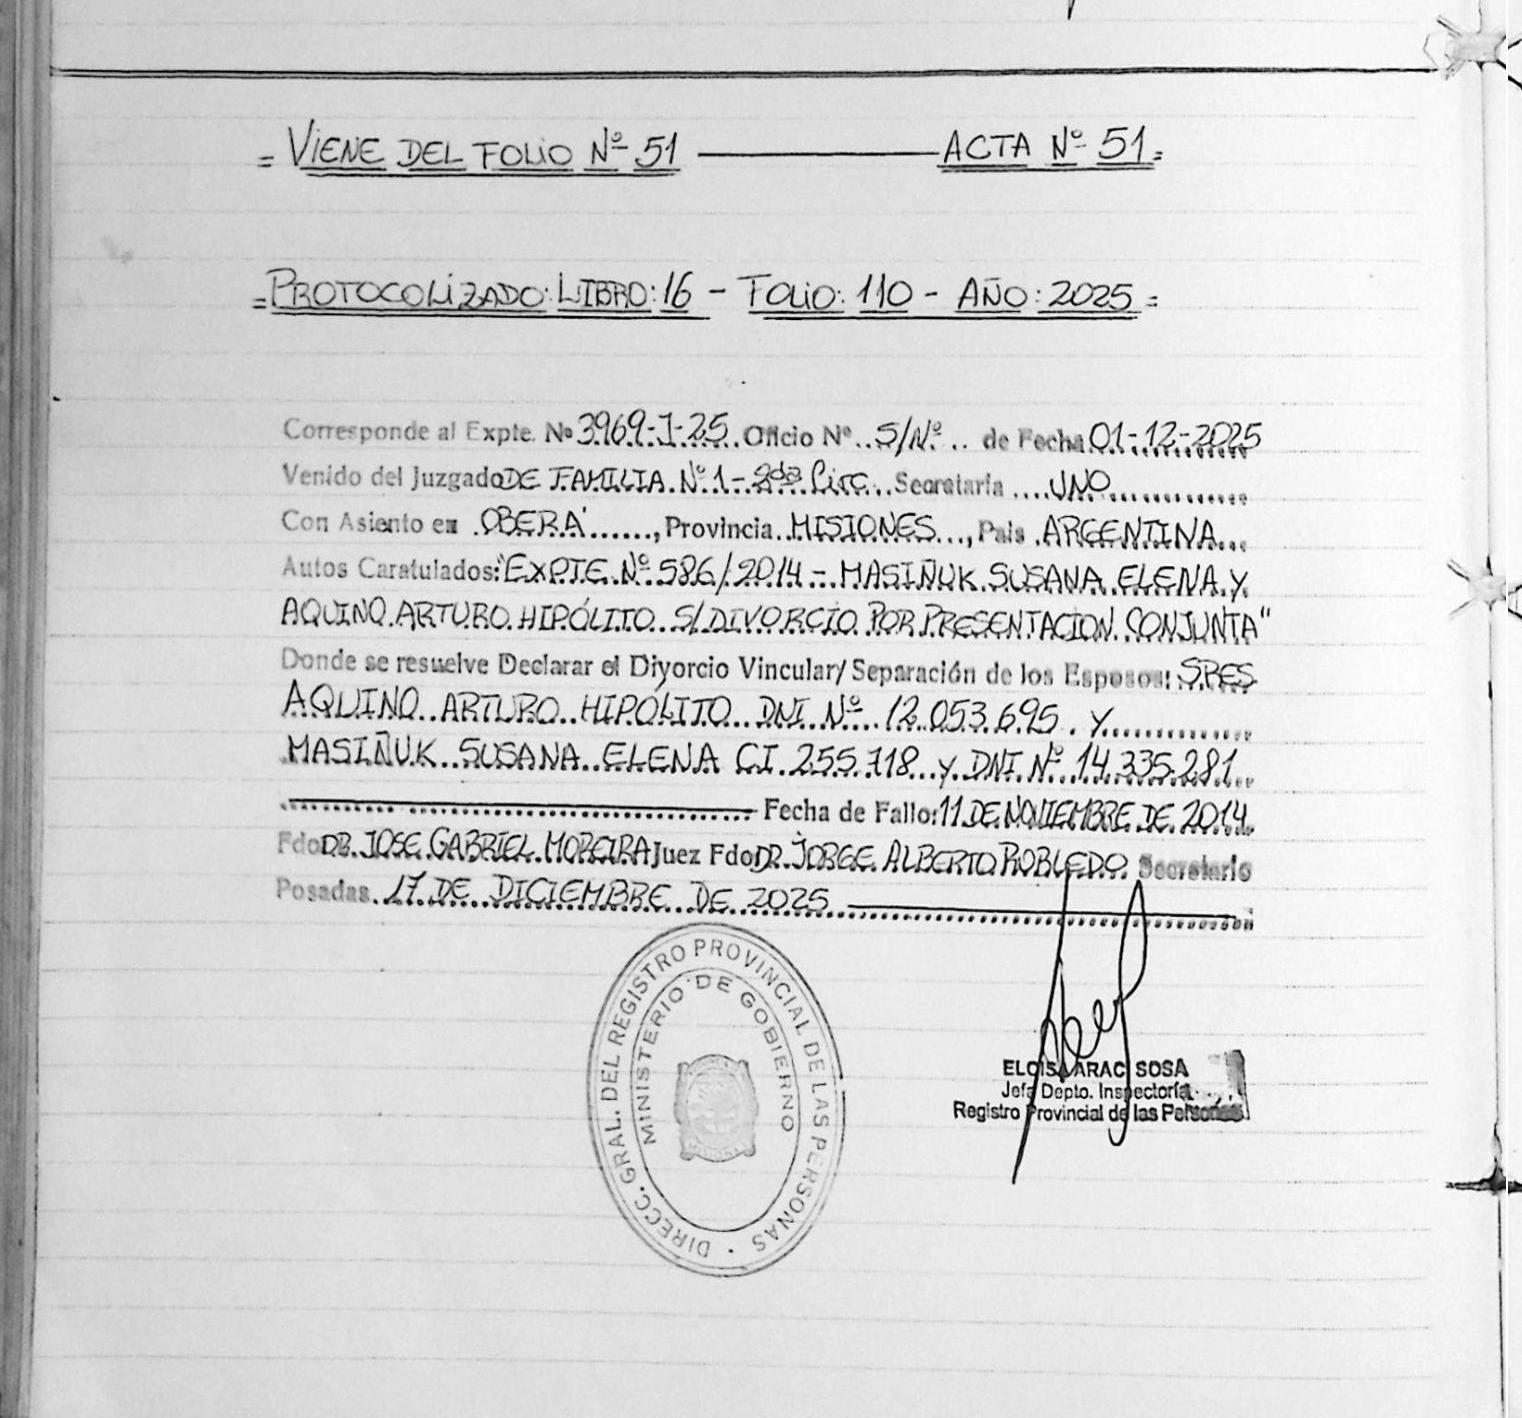 = VIENE DEL FOLIO Nº 51 ——— ACTA Nº 51 =
= PROTOCOLIZADO: LIBRO: 16 - FOLIO: 110 - AÑO: 2025 =
Corresponde al Expte. Nº 3969-J-25. Oficio Nº.. S/Nº.. de Fecha 01-12-2025
Venido del Juzgado DE FAMILIA Nº 1 - 2da Circ... Secretaría .... UNO ............
Con Asiento en .OBERÁ ......, Provincia..MISIONES..., Pais .ARGENTINA...
Autos Caratulados: "EXPTE. Nº 586/2014 - MASIÑUK SUSANA ELENA Y
AQUINO ARTURO HIPÓLITO S/ DIVORCIO POR PRESENTACION CONJUNTA"
Donde se resuelve Declarar el Divorcio Vincular/ Separación de los Esposos: SRES
AQUINO.. ARTURO.. HIPÓLITO... DNI Nº... 12.053.695 . Y ..............
MASIÑUK.. SUSANA.. ELENA CI. 255.718 .. y DNI Nº 14.335.281..
Fecha de Fallo: 11 DE NOVIEMBRE DE 2014
Fdo DR. JOSE GABRIEL MOREIRA Juez Fdo DR. JORGE ALBERTO ROBLEDO. Secretario
Posadas.. 17 DE DICIEMBRE DE 2025
DIRECC. GRAL. DEL REGISTRO PROVINCIAL DE LAS PERSONAS
MINISTERIO DE GOBIERNO
ELOISA ARAC SOSA
Jefa Depto. Inspectoría
Registro Provincial de las Personas